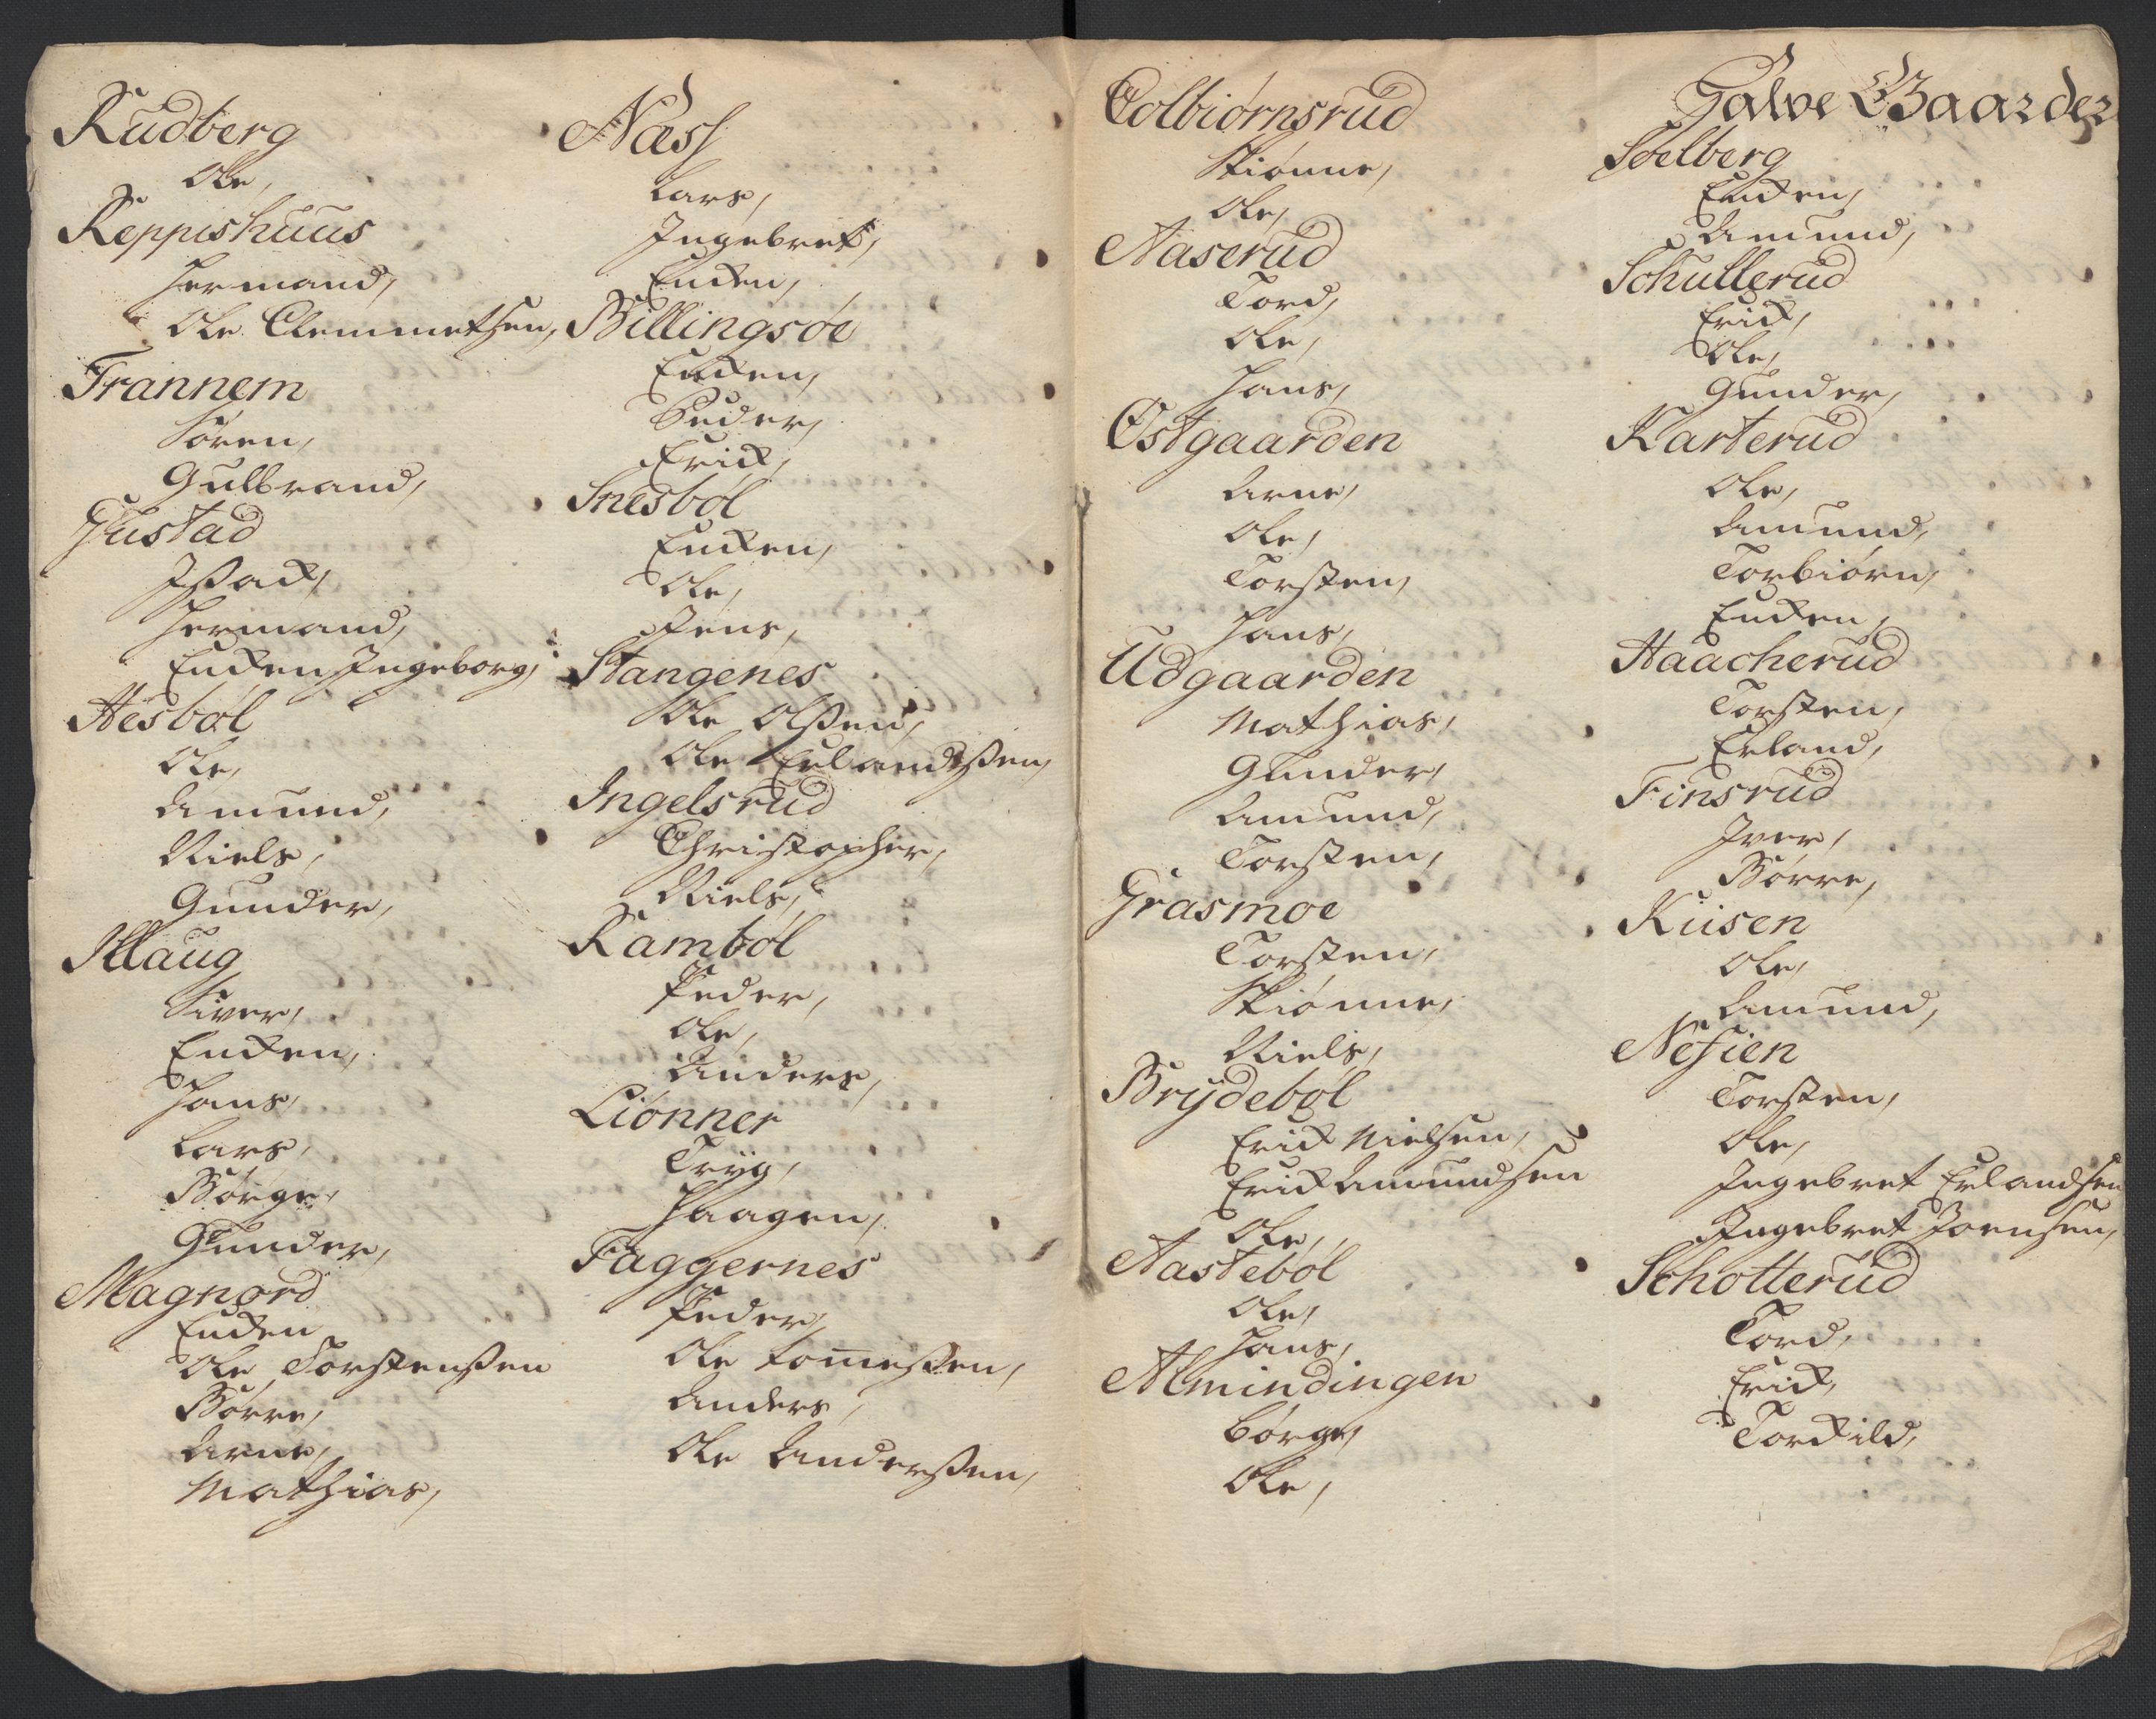 Rudberg
Ole,
Reppishuus
Hermand,
Ole Clemmethsen,
Frannem
Sören,
Gulbrand,
Gustad
Jssack,
Hermand,
Encken Jngeborg,
Hesbøl
Ole,
Amund,
Niels,
Gunder,
Maug
Siver,
Encken,
Hans,
Lars,
Börge,
Gunder,
Magnord
Encken
Ole Torstenssen
Börre,
Arne,
Mathias,
Næss
Lars,
Jngebret,
Encken,
Billingsøe
Encken,
Peder,
Erick,
Snesbøl
Encken,
Ole,
Jens,
Stangenes
Ole Olssen,
Ole Erlandssen,
Ingelsrud
Christopher,
Niels,
Rambøl
Peder,
Ole,
Anders,
Liønner
Tryg,
Haagen,
Faggernes
Peder,
Ole Tomessen,
Anders,
Ole Anderssen,
Colbiørnsrud
Skiönne,
Ole,
Aaserud
Tord,
Ole,
Hans,
Østgaarden
Arne,
Ole,
Torsten,
Hans,
Udgaarden
Mathias,
Gunder,
Amund,
Torsten,
Grasmoe
Torsten,
Skiönne,
Niels,
Brydebøl
Erick Nielsen,
Erick Amundsen
Ole,
Aastebøl
Ole,
Hans,
Almindingen
Börge,
Ole,
Halve Gaarder
Soelberg
Encken,
Amund,
Schullerud
Erick,
Ole,
Gunder,
Karterud
Ole,
Amund,
Torbiörn,
Encken,
Haacherud
Torsten,
Erland,
Finsrud
Jver,
Börre,
Kiisen
Ole,
Amund,
Nesien
Torsten,
Ole,
Jngebret Erlandsen
Jngebret Joensen,
Schotterud
Tord,
Erick,
Torckild,